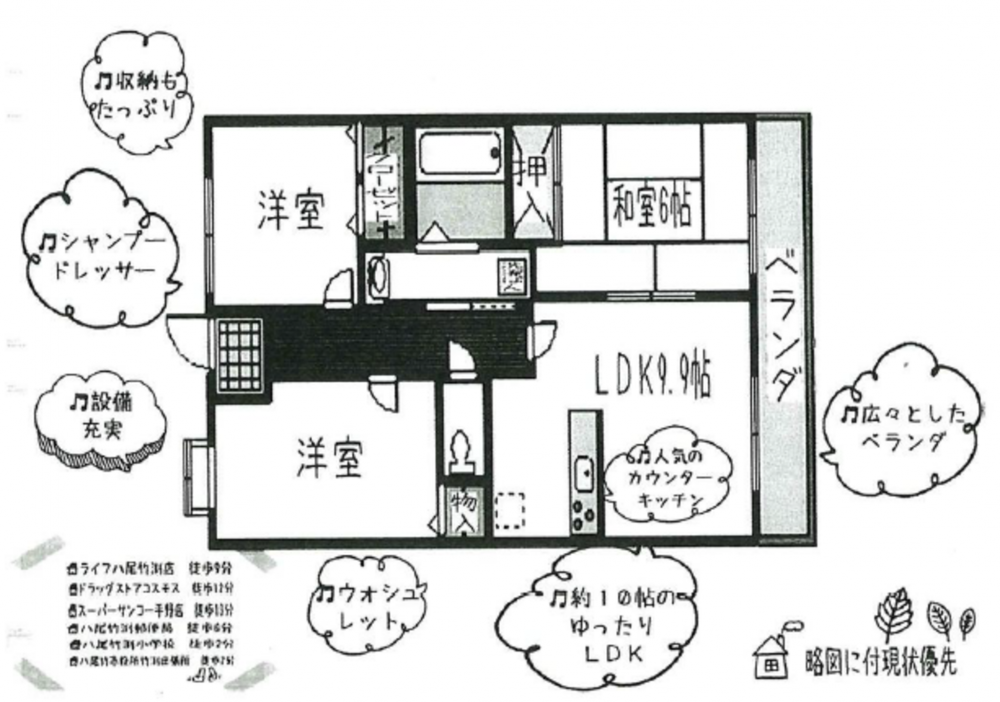 ♫収納も
たっぷり
♫シャンプー
ドレッサー
♫設備
充実
洋室
押
入
和室6帖
ベランダ
LDK9.9帖
洋室
物
入
♫人気の
カウンター
キッチン
♫広々とした
ベランダ
♫ウォシュ
レット
♫約10帖の
ゆったり
LDK
ライフ八尾竹渕店 徒歩9分
ドラッグストアコスモス 徒歩12分
スーパーサンコー平野店 徒歩13分
八尾竹渕郵便局 徒歩6分
八尾竹渕小学校 徒歩2分
八尾竹渕出張所
略図に付現状優先